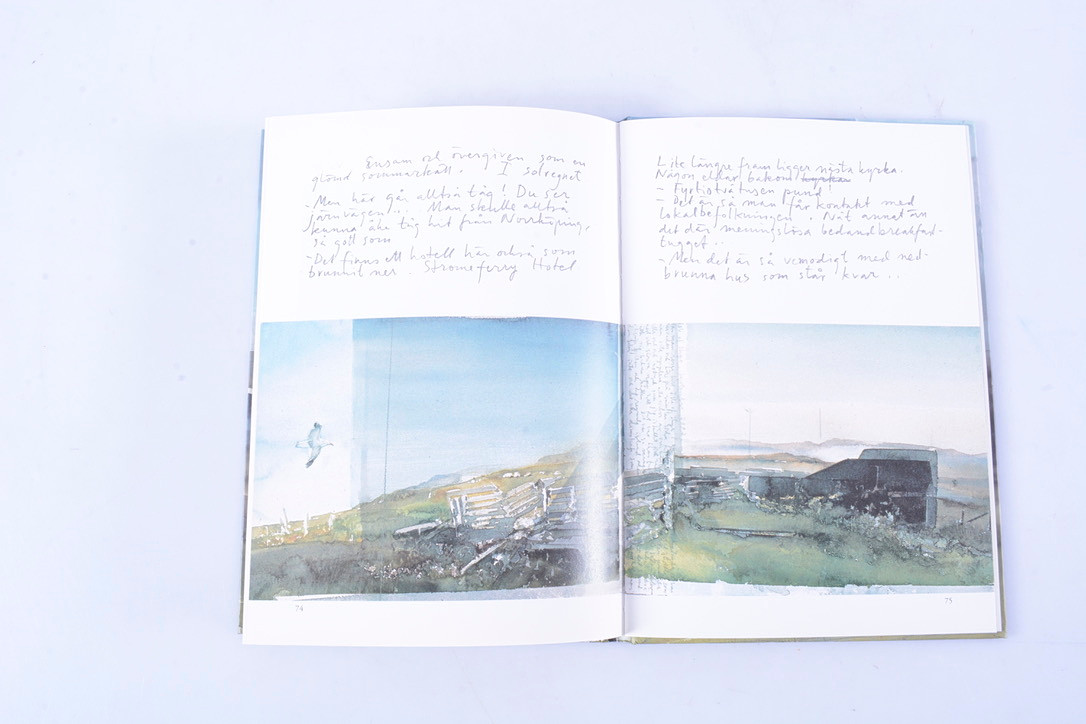 Ensam och övergiven som en
glömd sommarkatt. I solregnet
- Men här går alltså tåg! Du ser
järnvägen... Man skulle alltså
kunna åka tåg hit från Norrköping,
så gott som
- Det finns ett hotell här också som
brunnit ner. Stromeferry Hotel
74
Lite längre fram ligger nästa kyrka.
Någon eldar bakom kyrkan
- Fyrtiotvåtusen pund!
- Det är så man får kontakt med
lokalbefolkningen. Nåt annat än
det där meningslösa bedandbreakfast-
tugget..
- Men det är så vemodigt med ned-
brunna hus som står kvar...
75